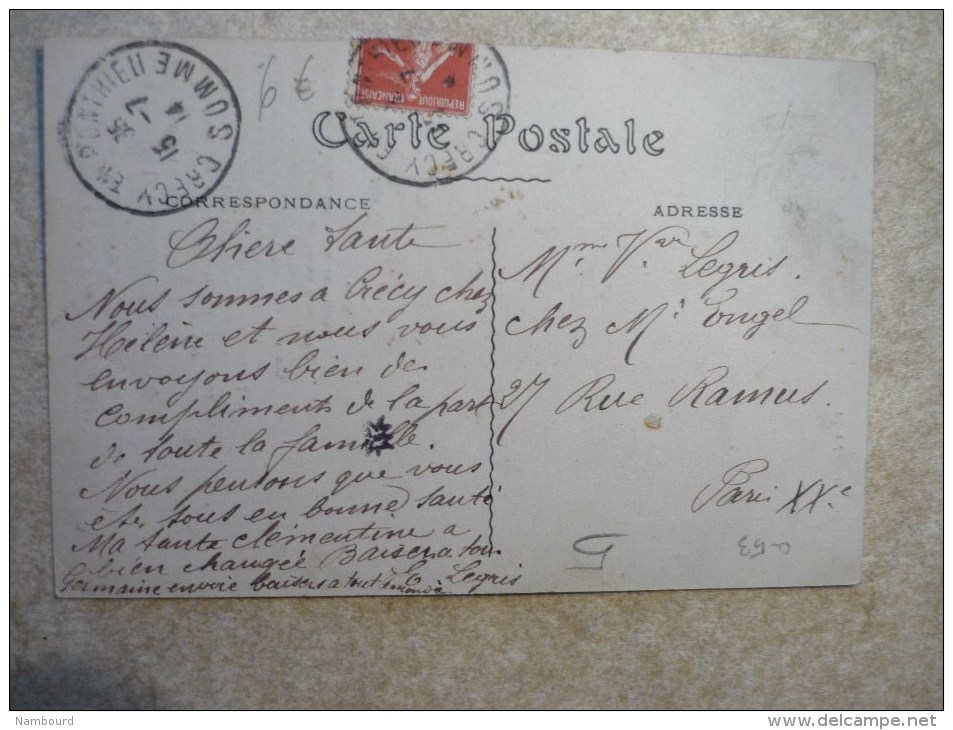 CRECY EN PONTHIEU SOMME
15 -7 14
35
6 €
REPUBLIQUE FRANÇAISE
CRECY SOMME
Carte Postale
CORRESPONDANCE
ADRESSE
Chere tante
Nous sommes a Crécy chez
Hélène et nous vous
envoyons bien des
compliments de la part
de toute la famille.
Nous pensons que vous
êtes tous en bonne santé
Ma tante Clémentine a
bien changée Baisers a tous
Legris
Germaine envoie baisers a tout le monde
Mme Vve Legris.
chez Mr Engel
27 Rue Ramus.
Paris XXe
5
0-53
Nambourd
http://www.delcampe.net